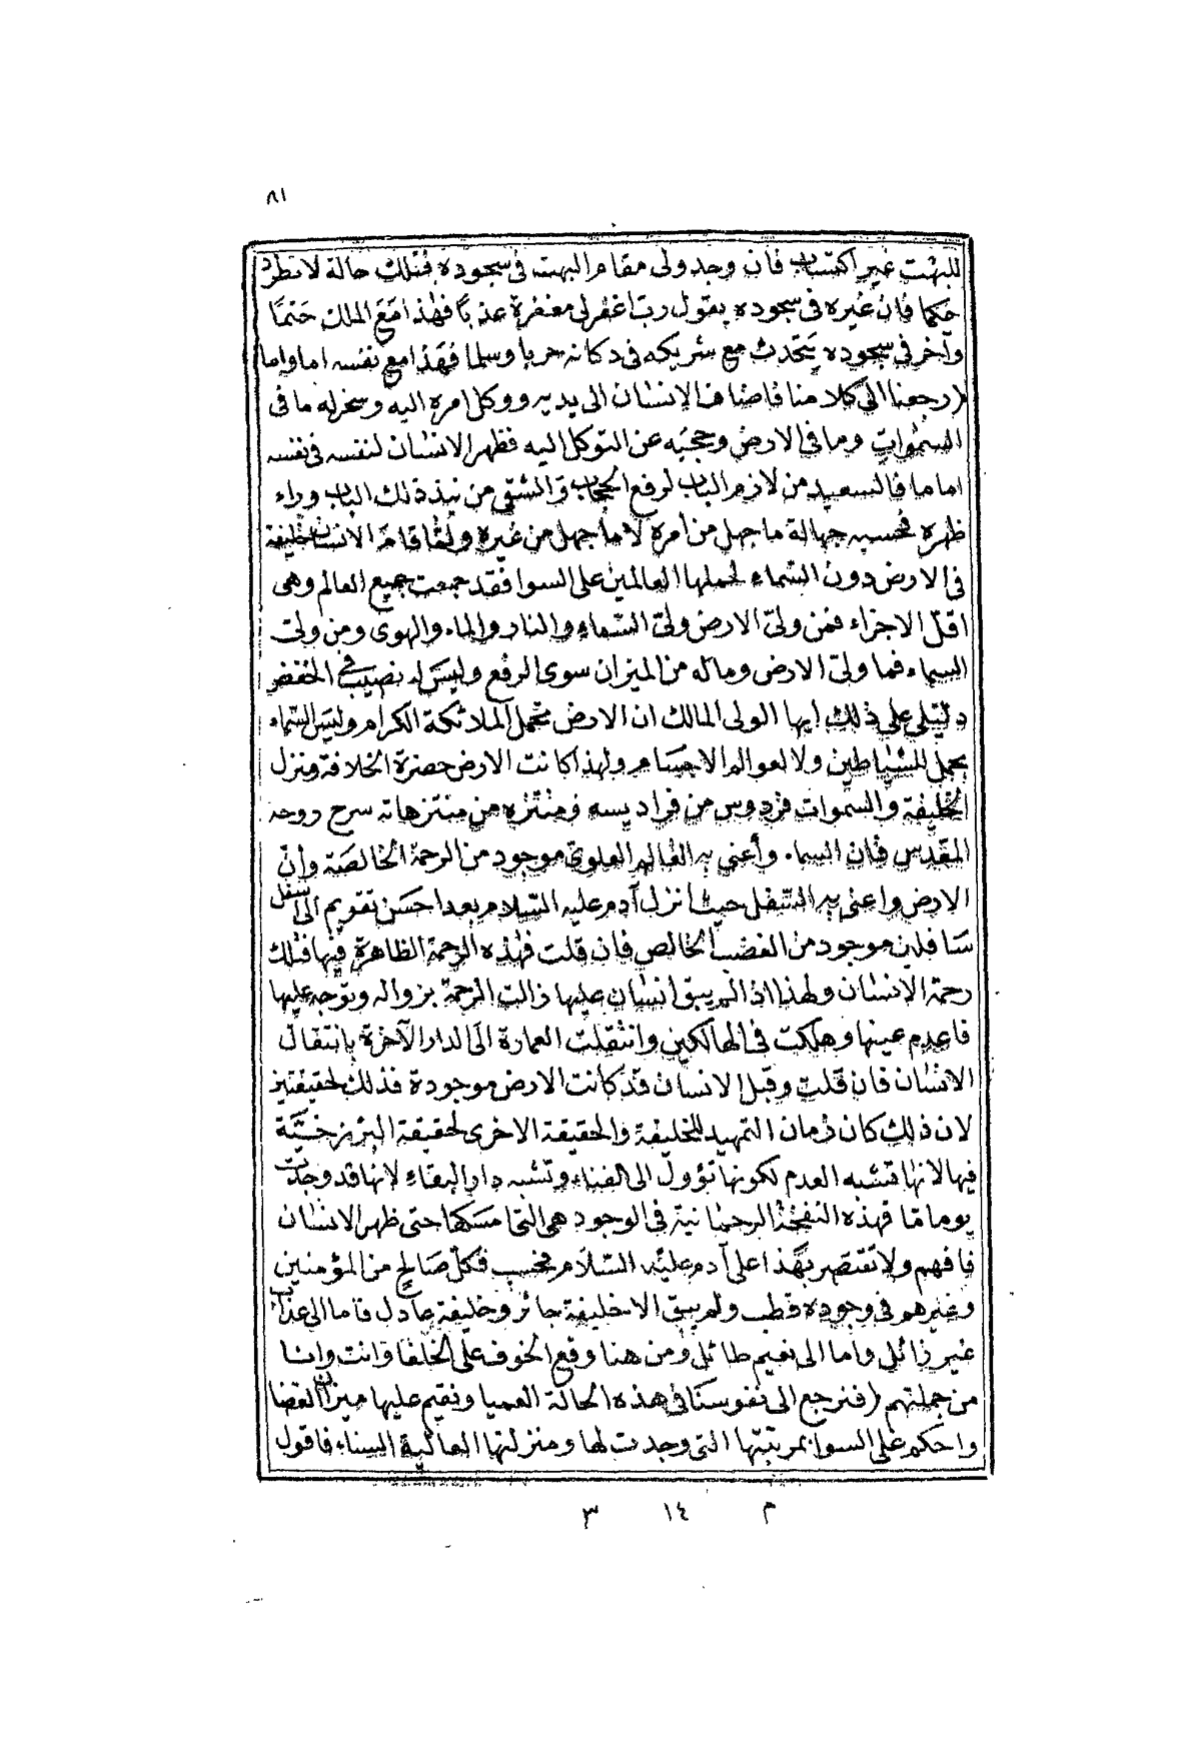 ٨١
للبهت غير اكتساب فان وجد ولى مقام البهت فى سجوده فتلك حالة لا تطرد
حكما فان غيره فى سجوده يقول رب اغفر لى مغفرة عذبا فهذا مع الملك حتما
وآخر فى سجوده يتحدث مع شريكه فى دكانه حربا وسلما فهذا مع نفسه اما واما
(رجعنا الى كلامنا فاضاف الانسان الى يديه ووكل امره اليه وسخر له ما فى
السموات وما فى الارض وحجبه عن التوكل اليه فظهر الانسان لنفسه فى نفسه
اماما فالسعيد من لازم الباب لرفع الحجاب والشقى من نبذ ذلك الباب وراء
ظهره فحسبه جهالة ما جهل من أمره لا ما جهل من غيره ولقاقامة الانسان خليفة
فى الارض دون السماء لحملها العالمين على السوا فقد جمعت جميع العالم وهى
اقل الاجزاء فمن ولى الارض ولى السماء والنار والماء والهوى ومن ولى
السماء فما ولى الارض وماله من الميزان سوى الرفع وليس له نصيب فى الخفض
دليلى على ذلك ايها الولى المالك ان الارض تحمل الملائكة الكرام وليس السماء
بحمل للشياطين ولا لعوالم الاجسام ولهذا كانت الارض حضرة الخلافة ومنزل
الخليفة والسموات فردوس من فراديسه ومنتزه من منتزهاته سرح روحه
المقدس فان السماء وأعنى به العالم العلوى موجود من الرحمة الخالصة وان
الارض واعنى به السفل حيث أنزل آدم عليه السلام بعد احسن تقويم الى اسفل
سافلين موجود من الغضب الخالص فان قلت فهذه الرحمة الظاهرة فيها فتلك
رحمة الانسان ولهذا اذا لم يبق انسان عليها زالت الرحمة بزواله وتوجه عليها
فاعدم عينها وهلكت فى الهالكين وانتقلت العمارة الى الدار الآخرة بانتقال
الانسان فان قلت وقبل الانسان قد كانت الارض موجودة فذلك لحقيقتين
لان ذلك كان زمان التمهيد للخليفة والحقيقة الاخرى لحقيقة البرزخية
فيها لانها تشبه العدم لكونها تؤول الى الفناء وتشبه دار البقاء لانها قد وجدت
يوما ما فهذه النفخة الرحمانية فى الوجود هى التى امسكها حتى ظهر الانسان
فافهم ولا تقتصر بهذا على آدم عليه السلام فحسب فكل صالح من المؤمنين
وغيرهم فى وجوده قطب ولم يبق الا خليفة جائر وخليفة عادل فاما الى عذاب
غير زائل واما الى نعيم طائل ومن هنا وقع الخوف على الخلفا وانت وانا
من جملتهم (فنرجع الى نفوسنا فى هذه الحالة العميا ونقيم عليها ميزان القضا
واحكم على السوا بمرتبتها التى وجدت لها ومنزلتها العالية السناء فاقول
م ١٤ ٣